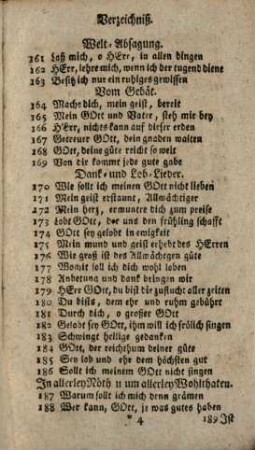 Verzeichniß.
Welt-Absagung.
161 Laß mich, o HErr, in allen dingen
162 HErr, lehre mich, wenn ich der tugend diene
163 Besitz ich nur ein ruhiges gewissen
Vom Gebät.
164 Mache dich, mein geist, bereit
165 Mein GOtt und Vater, steh mir bey
166 HErr, nichts kann auf dieser erden
167 Getreuer GOtt, dein gnaden walten
168 GOtt, deine güte reicht so weit
169 Von dir kommt jede gute gabe
Dank- und Lob-Lieder.
170 Wie sollt ich meinen GOtt nicht lieben
171 Mein geist erstaunt, Allmächtiger
172 Mein herz, ermuntre dich zum preise
173 Lobt GOtt, der uns den frühling schafft
174 GOtt sey gelobt in ewigkeit
175 Mein mund und geist erhebt des HErren
176 Wie groß ist des Allmächtgen güte
177 Womit soll ich dich wohl loben
178 Anbetung und dank bringen wir
179 HErr GOtt, du bist die zuflucht aller zeiten
180 Du bists, dem ehr und ruhm gebührt
181 Durch dich, o großer GOtt
182 Gelobt sey GOtt, ihm will ich frölich singen
183 Schwingt heilige gedanken
184 GOtt, der reichthum deiner güte
185 Sey lob und ehr dem höchsten gut
186 Sollt ich meinem GOtt nicht singen
In allerley Nöth u um allerley Wohlthaten.
187 Warum sollt ich mich denn grämen
188 Wer kann, GOtt, je was gutes haben
* 4 189 Ist